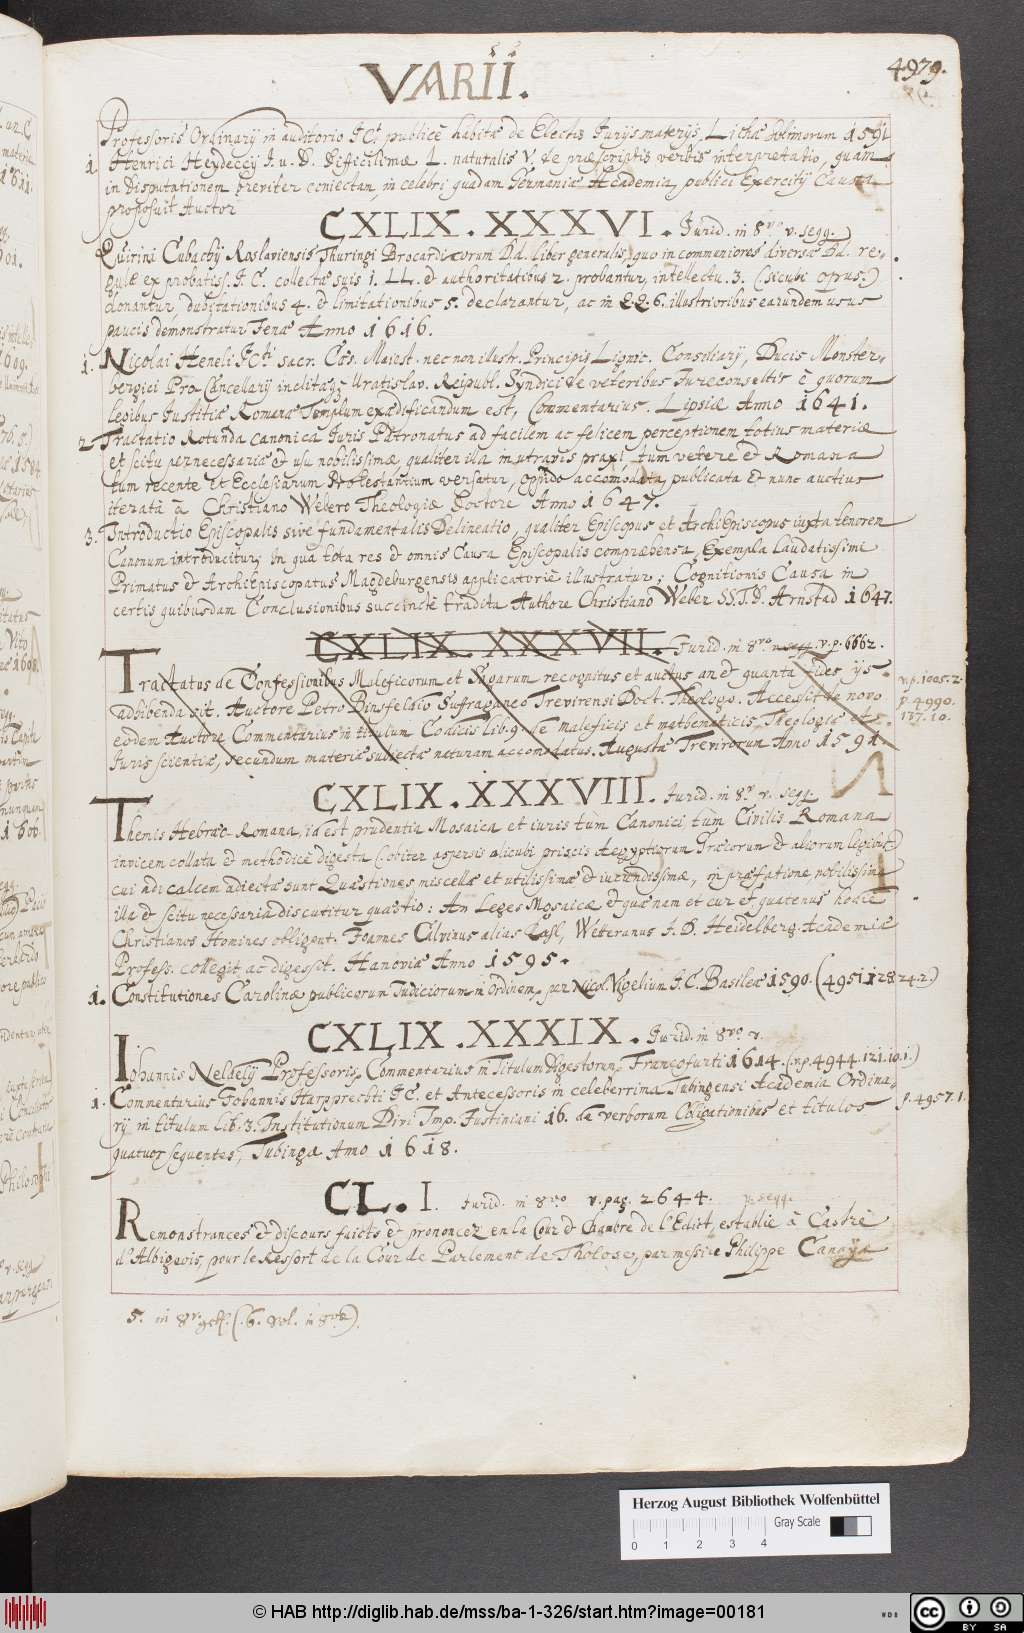 VARII.
4979.
Professoris Ordinarij in auditorio JCt. publicè habitæ de Electis Jurys materijs, Lichæ Solmorum 1591
1 Henrici Heydeccij J. u. D. Difficillimæ L. naturalis V. de præscriptis verbis interpretatio, quam
in Disputationem breviter coniectam, in celebri quadam Germaniæ Academia, publici Exercitij Causa
proposuit Auctor
CXLIX. XXXVI. Jurid. in 8vo v. seqq.
Quirini Cubachij Raslaviensis Thuringi Brocardicorum Dd. liber generalis, quo in communiores diversæ Dd. re-
gulæ ex probatiss. J. C. collectæ suis 1. LL. et authoritatibus 2. probantur, intellectu. 3. (sicubi opus.)
donantur, dubitationibus 4. et limitationibus 5. declarantur, ac in QQ. 6. illustrioribus earundem usus
paucis demonstratur Jenæ Anno 1616.
1. Nicolai Heneli JCti sacr. Cæs. Maiest. nec non illustr. Principis Lignic. Consiliarij, Ducis Monster-
bergici Pro Cancellarij inclitæq; Uratislav. Reipubl. Syndici de veteribus Jureconsultis è quorum
legibus Justitiæ Romanæ Templum exædificandum est, Commentarius. Lipsiæ Anno 1641.
2 Tractatio Rotunda canonica Juris Patronatus ad facilem ac felicem perceptionem totius materiæ
et scitu pernecessariæ et usu nobilissimæ qualiter illa in utravis praxi, tum vetere et Romana
tum recente et Ecclesiarum Protestantium versatur, oppido accomodata publicata et nunc auctius
iterata à Christiano Webero Theologiæ Doctore Anno 1647.
3. Introductio Episcopalis sive fundamentalis Delineatio, qualiter Episcopus et ArchiEpiscopus iuxta tenorem
Canonum introducitur, In qua tota res et omnis Causa Episcopalis compræhensa, Exempla Laudatissimi
Primatus et Archiepiscopatus Magdeburgensis applicatoriè illustratur; Cognitionis Causa in
certis quibusdam Conclusionibus succinctè tradita Authore Christiano Weber SS.T.D. Arnstad 1647.
CXLIX. XXXVII. Jurid. in 8vo seqq. v. p. 6662.
Tractatus de Confessionibus Maleficorum et Sagarum recognitus et auctus an et quanta fides ijs
adhibenda sit. Auctore Petro Binsfeldio Suffraganeo Trevirensi Doct. Theologo. Accessit de novo
eodem Auctore Commentarius in titulum Codicis lib. 9. de maleficis et mathematicis, Theologiæ et
Juris scientiæ, secundum materiæ subiectæ naturam accommodatus. Augustæ Trevirorum Anno 1591
v. p. 1005. 2.
p. 4990.
127. 10.
CXLIX. XXXVIII. Jurid. in 8vo v. seqq.
Themis Hebræo-Romana, id est prudentia Mosaica et iuris tùm Canonici tùm Civilis Romana
invicem collata et methodicè digesta (obiter aspersis alicubi priscis Aegyptiorum Græcorum et aliorum legibus)
cui ad calcem adiectæ sunt Quæstiones miscellæ et utilissimæ et iucundissimæ, in præfatione, nobilissima
illa et scitu necessaria discutitur quæstio: An Leges Mosaicæ et quænam et cur et quatenus hodiè
Christianos Homines obligent. Joannes Calvinus alias Kahl, Wetteranus J. D. Heidelberg. Academiæ
Profess. collegit ac digessit. Hanoviæ Anno 1595.
1. Constitutiones Carolinæ publicorum Judiciorum in Ordinem, per Nicol. Vigelium J.C. Basileæ 1590. (4951. 128. 24. 2.)
CXLIX. XXXIX. Jurid. in 8vo v.
Johannis Neldelij Professoris, Commentarius in Titulum Digestorum, Francofurti 1614. (v. p. 4944. 121. 10. 1.)
1. Commentarius Johannis Harpprechti JC. et Antecessoris in celeberrima Tubingensi Academia Ordina-
rij in titulum lib. 3. Institutionum Divi Imp. Justiniani 16. de verborum Obligationibus et titulos
quatuor sequentes, Tubingæ Anno 1618.
p. 4957. 1.
CL. I. Jurid. in 8vo v. pag. 2644. v. seqq.
Remonstrances et discours faicts et prononcez en la Cour et Chambre de l'Edict, establie à Castre
d'Albigeois, pour le Ressort de la Cour de Parlement de Tholose, par messire Philippe Canaye
5. in 8vo
Herzog August Bibliothek Wolfenbüttel
Gray Scale
0 1 2 3 4
© HAB http://diglib.hab.de/mss/ba-1-326/start.htm?image=00181
WDB
cc BY SA